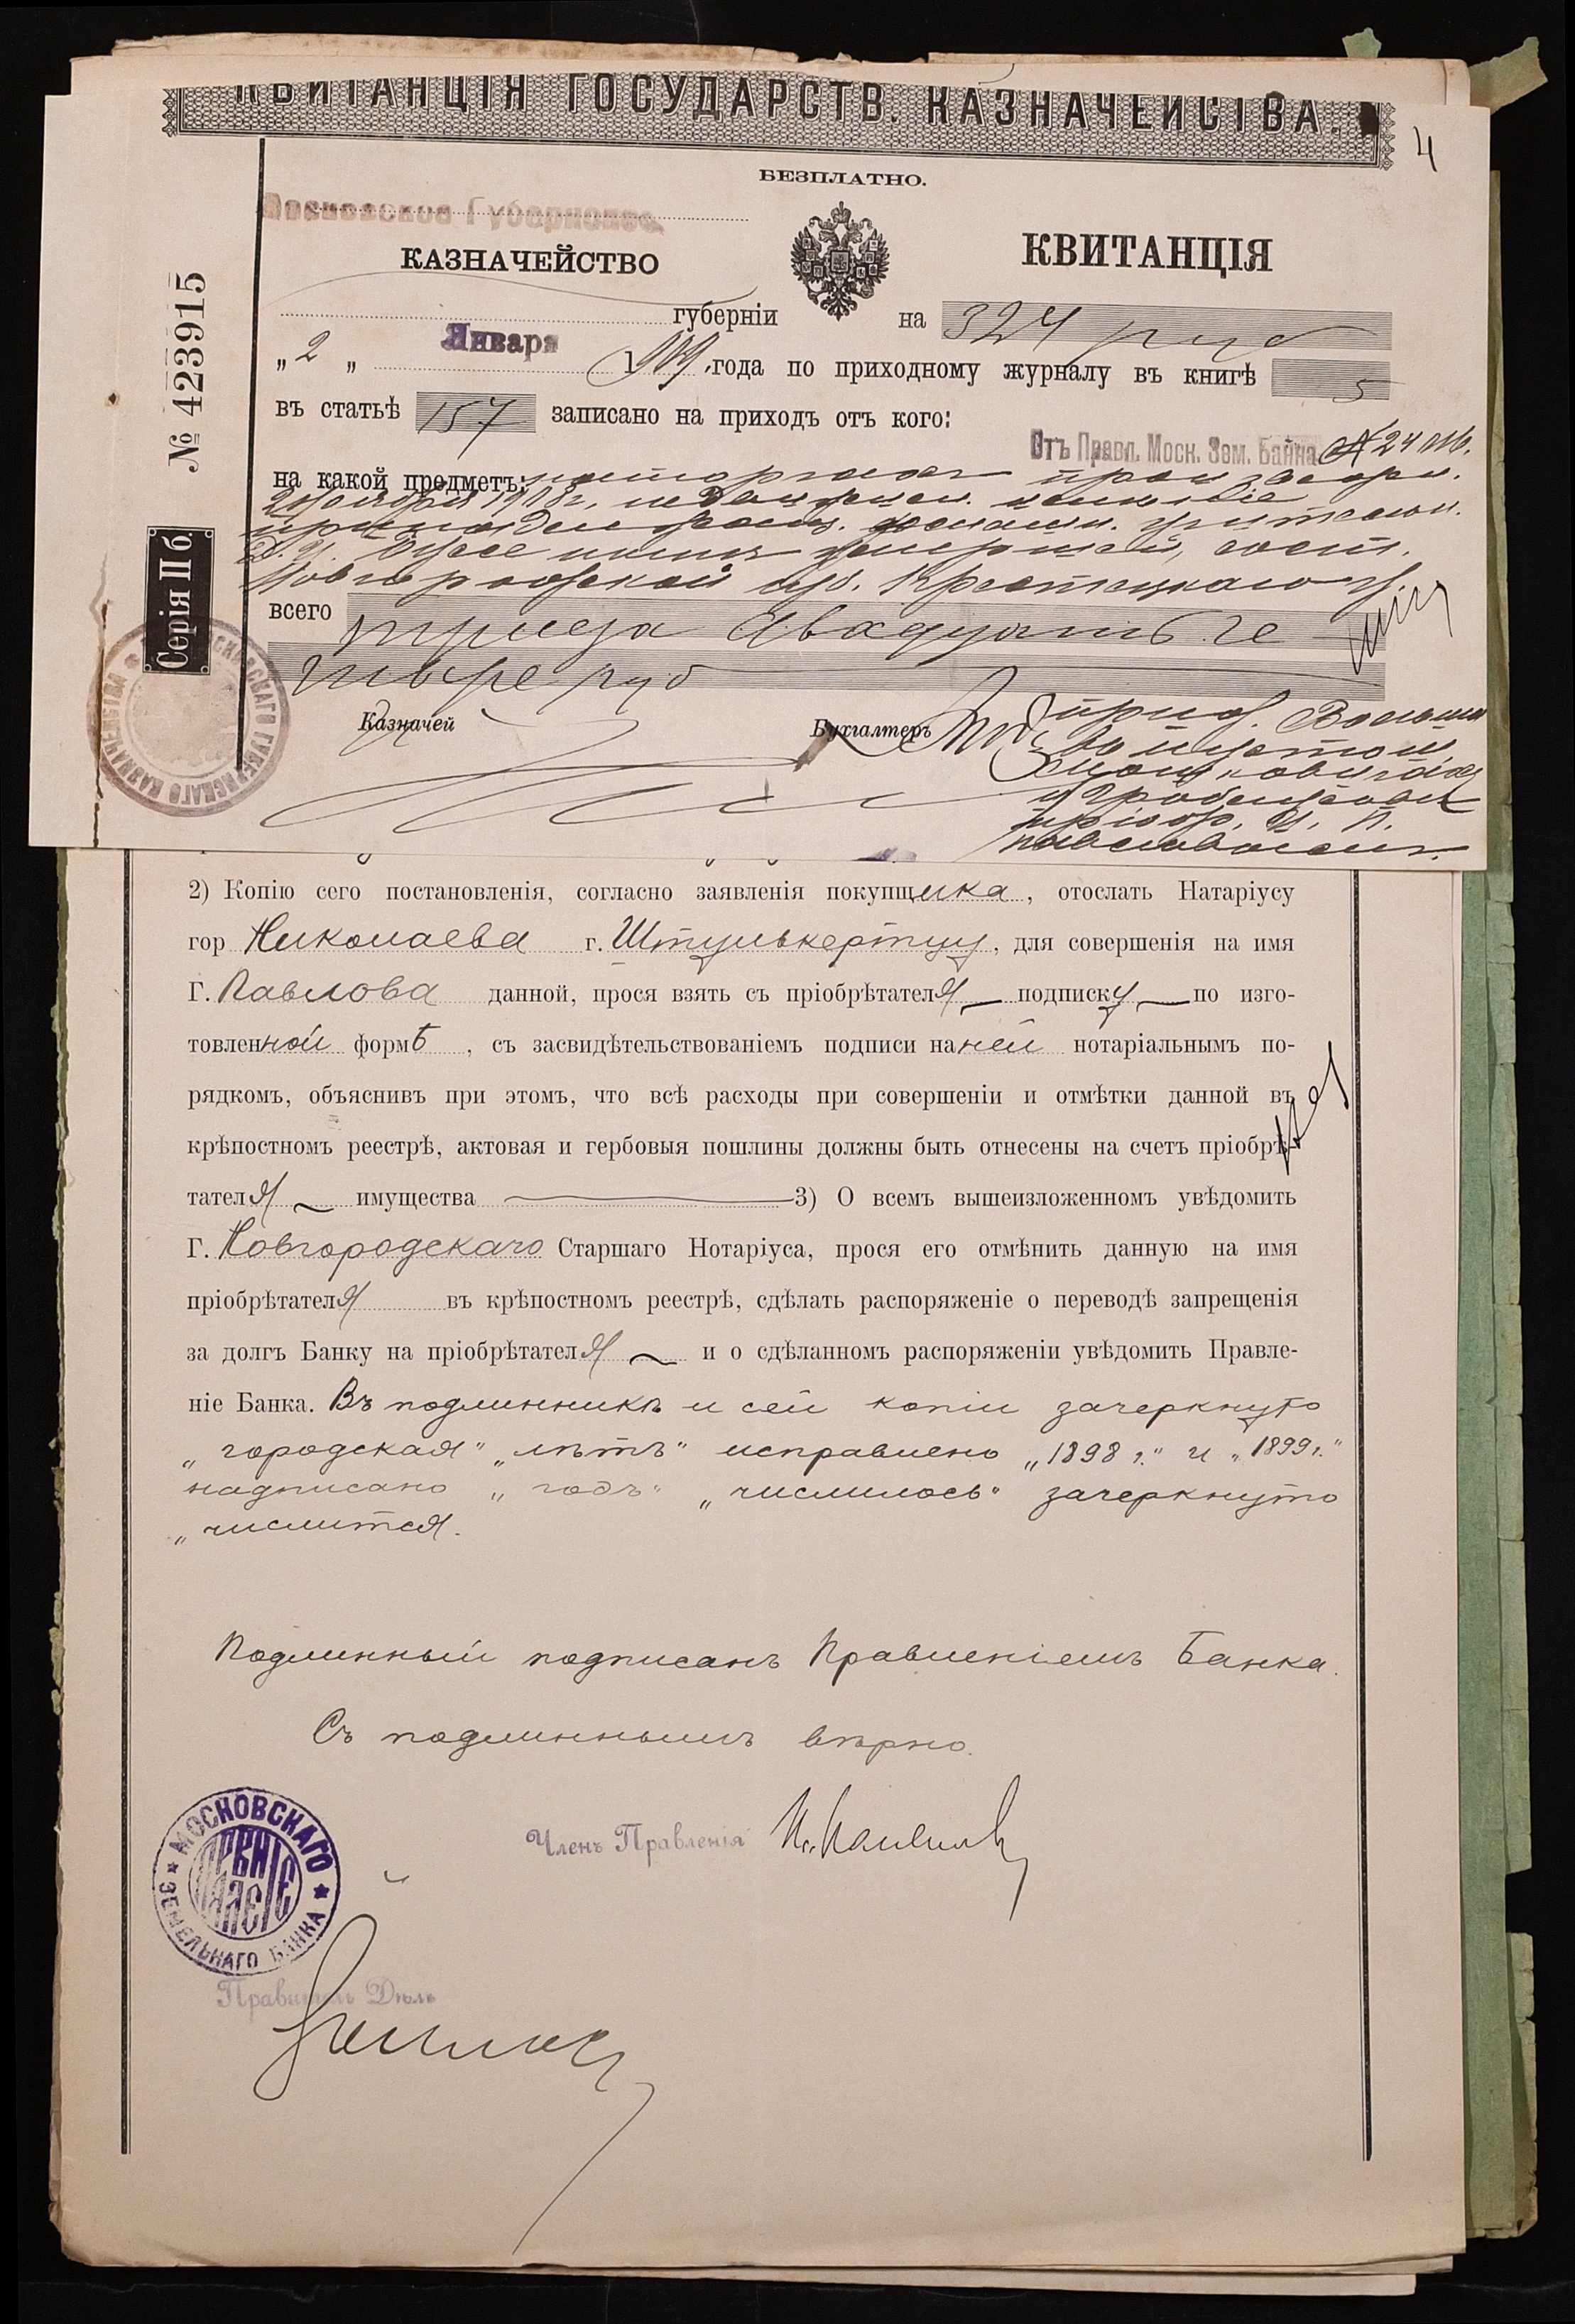 КВИТАНЦІЯ ГОСУДАРСТВ. КАЗНАЧЕЙСТВА.
4
БЕЗПЛАТНО.
Московское Губернское
КАЗНАЧЕЙСТВО
КВИТАНЦІЯ
губерніи
на 324 руб
„2„ Января 1909 года по приходному журналу въ книгѣ 5
въ статьѣ 157 записано на приходъ отъ кого:
Отъ Правл. Моск. Зем. Банка
на какой предметъ:
1908г.
Новгородской губ. Крестецкаго у.
всего триста двадцать че
тыре руб
Казначей
Бухгалтеръ
№ 423915
Серія II б.
2) Копію сего постановленія, согласно заявленія покупщика, отослать Натаріусу
гор Николаева г. Штулькертцу, для совершенія на имя
Г. Павлова данной, прося взять съ пріобрѣтателя подписку по изго-
товленной формѣ, съ засвидѣтельствованіемъ подписи на ней нотаріальнымъ по-
рядкомъ, объяснивъ при этомъ, что всѣ расходы при совершеніи и отмѣтки данной въ
крѣпостномъ реестрѣ, актовая и гербовыя пошлины должны быть отнесены на счетъ пріобрѣ-
тателя имущества 3) О всемъ вышеизложенномъ увѣдомить
Г. Новгородскаго Старшаго Нотаріуса, прося его отмѣнить данную на имя
пріобрѣтателя въ крѣпостномъ реестрѣ, сдѣлать распоряженіе о переводѣ запрещенія
за долгъ Банку на пріобрѣтателя и о сдѣланномъ распоряженіи увѣдомить Правле-
ніе Банка. Въ подлинникѣ и сей копіи зачеркнуто
„городская" „лѣтъ" исправлено „1898 г." и „1899 г."
надписано „годъ" „числилось" зачеркнуто
„числится.
Подлинный подписанъ Правленіемъ Банка.
Съ подлиннымъ вѣрно.
Членъ Правленія
МОСКОВСКАГО ЗЕМЕЛЬНАГО БАНКА
Правитель Дѣлъ